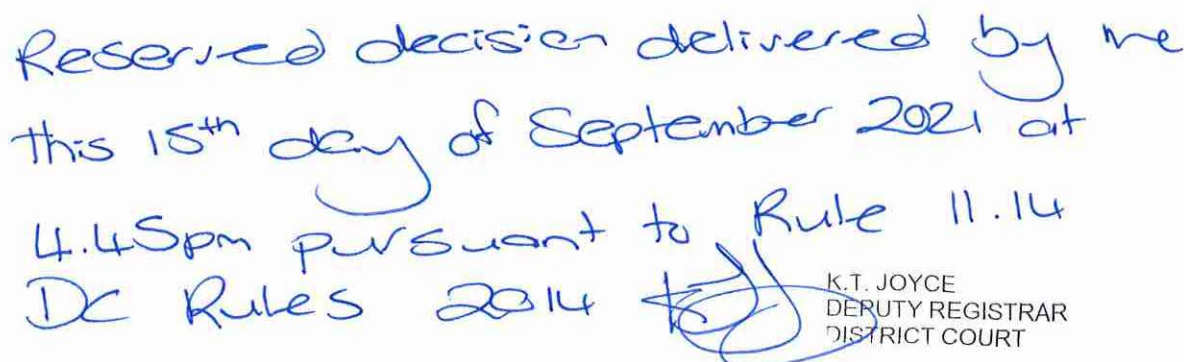 Reserved decision delivered by me
this 15th day of September 2021 at
4.45pm pursuant to Rule 11.14
DC Rules 2014
K.T. JOYCE
DEPUTY REGISTRAR
DISTRICT COURT